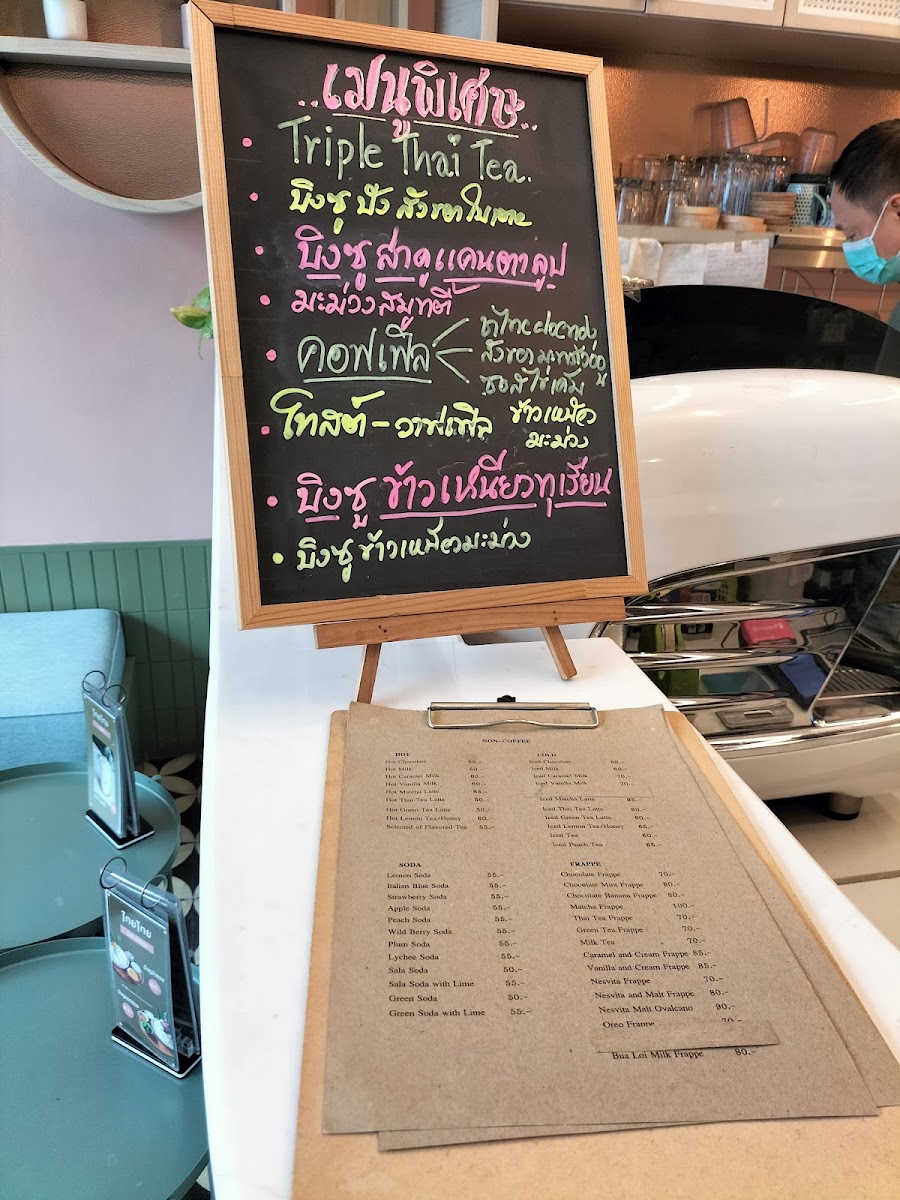 ..เมนูพิเศษ..
Triple Thai Tea.
บิงซู ปัง สังขยาใบเตย
บิงซู ส่าคูแคนตาลูป
มะม่วงสมูทตี้
คอฟเฟิล
ซอสไข่เค็ม
โทสต์ - วาฟเฟิล ข้าวเหนียว
มะม่วง
บิงซู ข้าวเหนียวทุเรียน
บิงซู ข้าวเหนียวมะม่วง
NON-COFFEE
HOT
Hot Chocolate 50.-
Hot Milk 50.-
Hot Caramel Milk 60.-
Hot Vanilla Milk 60.-
Hot Matcha Latte 85.-
Hot Thai Tea Latte 50.-
Hot Green Tea Latte 50.-
Hot Lemon Tea/Honey 60.-
Selected of Flavored Tea 55.-
COLD
Iced Chocolate 60.-
Iced Milk 60.-
Iced Caramel Milk 70.-
Iced Vanilla Milk 70.-
Iced Matcha Latte 95.-
Iced Thai Tea Latte 60.-
Iced Green Tea Latte 60.-
Iced Lemon Tea/Honey 65.-
Iced Tea 60.-
Iced Peach Tea 65.-
SODA
Lemon Soda 55.-
Italian Blue Soda 55.-
Strawberry Soda 55.-
Apple Soda 55.-
Peach Soda 55.-
Wild Berry Soda 55.-
Plum Soda 55.-
Lychee Soda 55.-
Sala Soda 50.-
Sala Soda with Lime 55.-
Green Soda 50.-
Green Soda with Lime 55.-
FRAPPE
Chocolate Frappe 70.-
Chocolate Mint Frappe 80.-
Chocolate Banana Frappe 80.-
Matcha Frappe 100.-
Thai Tea Frappe 70.-
Green Tea Frappe 70.-
Milk Tea 70.-
Caramel and Cream Frappe 85.-
Vanilla and Cream Frappe 85.-
Nesvita Frappe 70.-
Nesvita and Malt Frappe 80.-
Nesvita Malt Ovalcano 90.-
Oreo Frappe 70.-
Bua Loi Milk Frappe 80.-
ไทยไทย